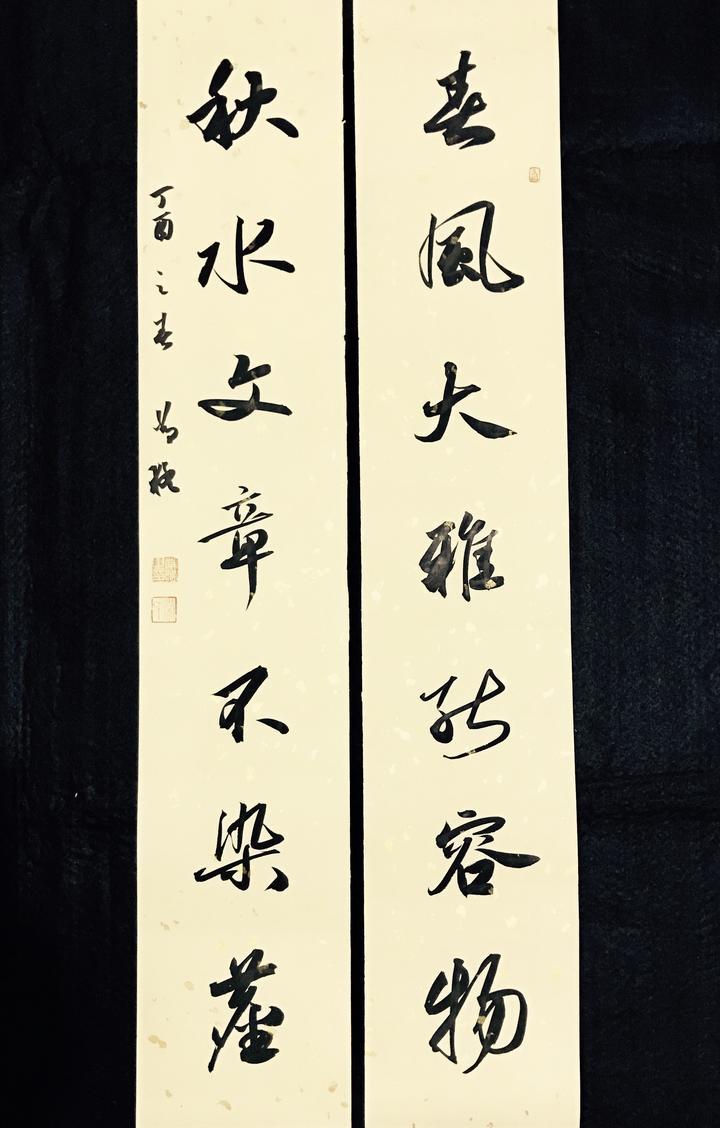 春風大雅能容物
秋水文章不染塵
丁酉之春